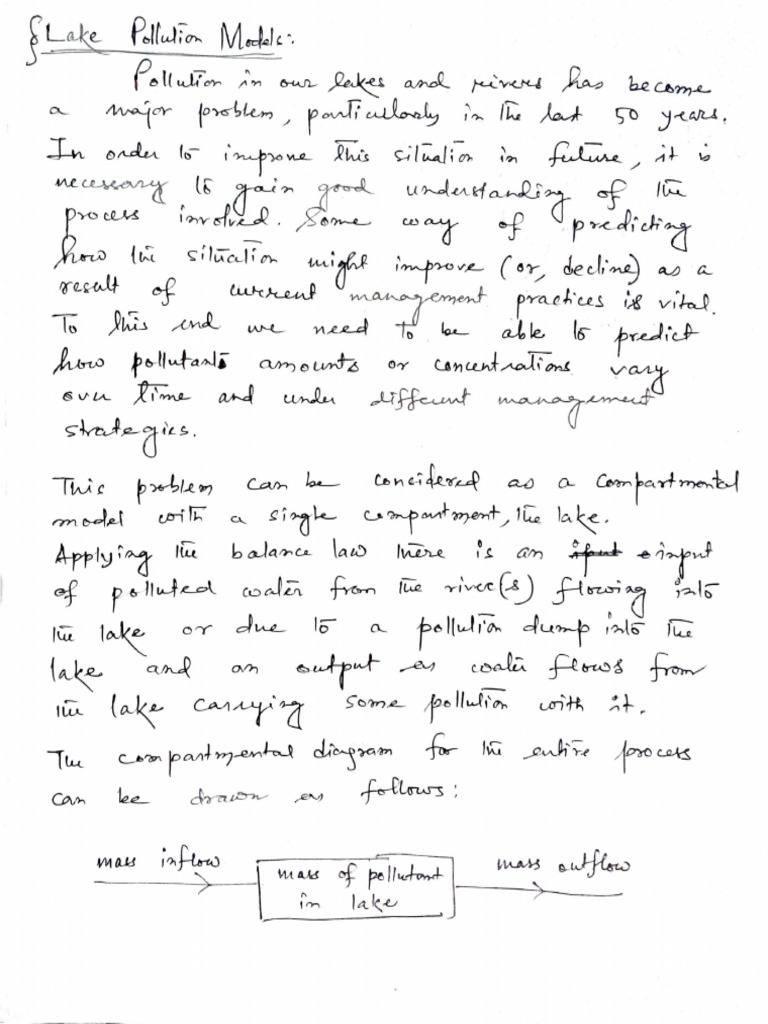 § Lake Pollution Models:
Pollution in our lakes and rivers has become
a major problem, particularly in the last 50 years.
In order to improve this situation in future, it is
necessary to gain good understanding of the
process involved. Some way of predicting
how the situation might improve (or, decline) as a
result of current management practices is vital.
To this end we need to be able to predict
how pollutants amounts or concentrations vary
over time and under different management
strategies.
This problem can be concidered as a compartmental
model with a single compartment, the lake.
Applying the balance law there is an input
of polluted water from the river(s) flowing into
the lake or due to a pollution dump into the
lake and an output as water flows from
the lake carrying some pollution with it.
The compartmental diagram for the entire process
can be drawn as follows:
mass inflow
mass of pollutant
in lake
mass outflow